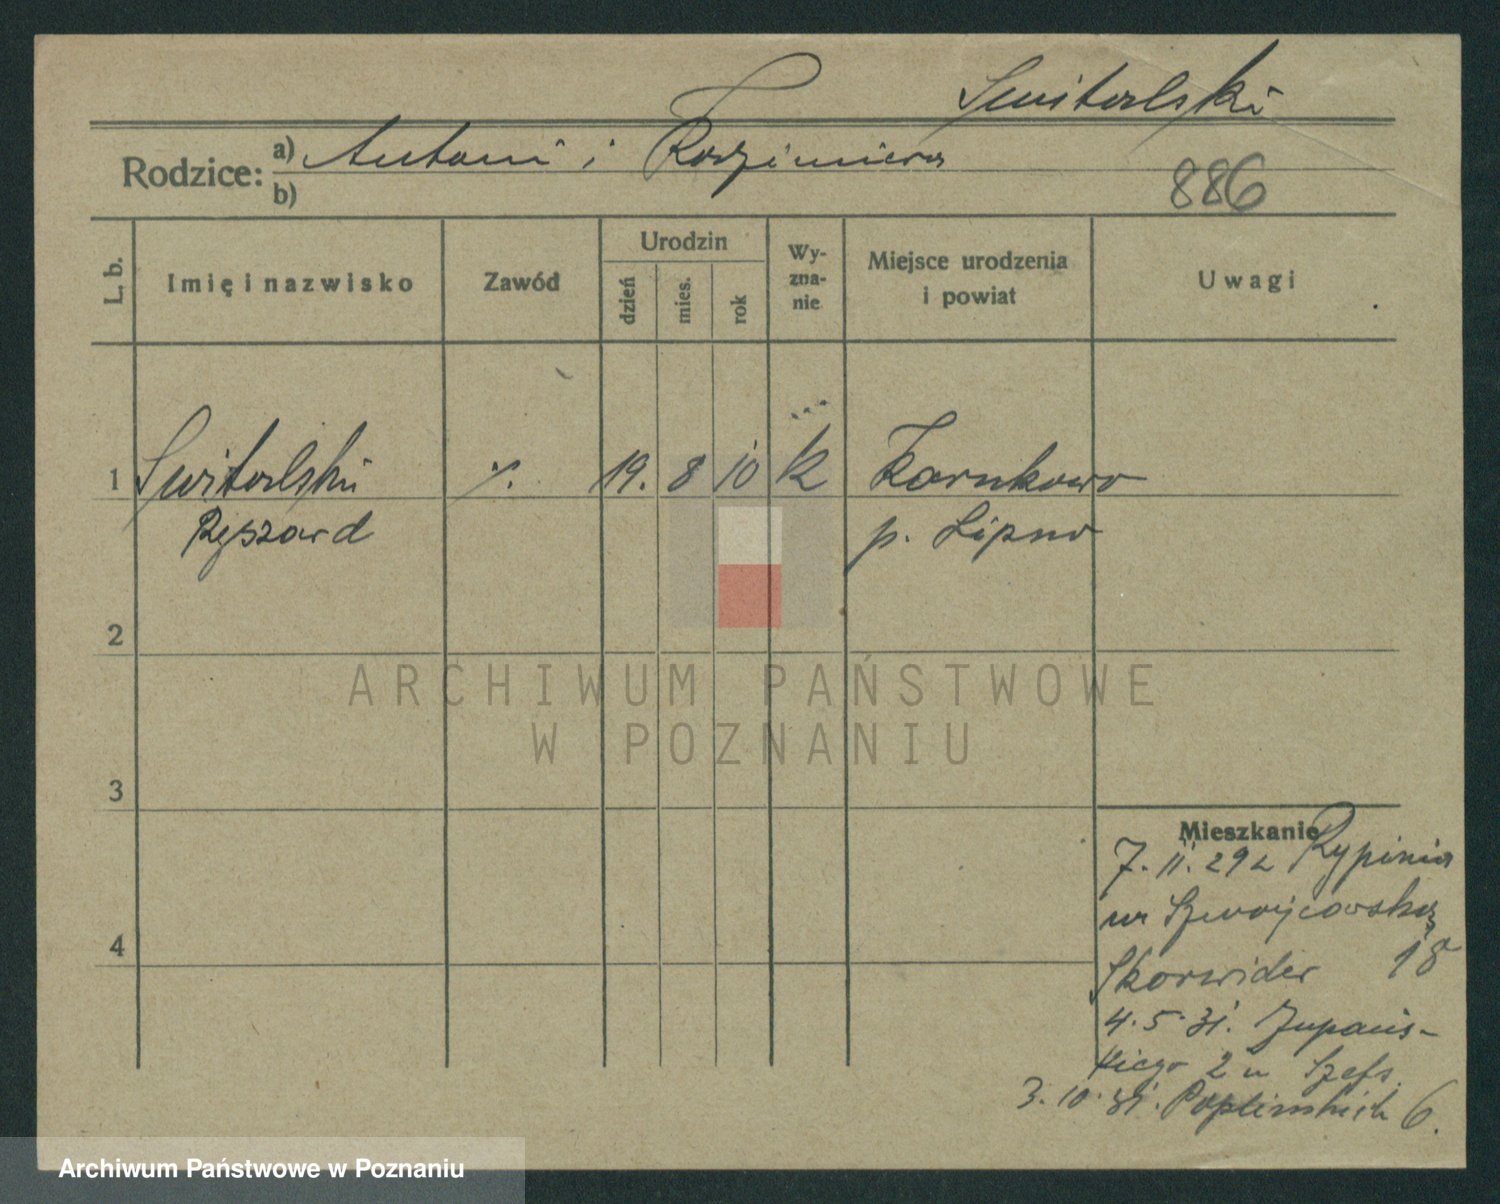 Switalski
Rodzice: a) Antoni i Kazimiera
b)
886
L. b.
Imię i nazwisko
Zawód
Urodzin
dzień
mies.
rok
Wy-
zna-
nie
Miejsce urodzenia
i powiat
Uwagi
1 Switalski ·/. 19. 8 10 k Karnkowo
Ryszard p. Lipno
2
3
4
ARCHIWUM PAŃSTWOWE
W POZNANIU
Mieszkanie
7. II. 29 z Rypinia
na Szwajcarską
18
4. 5. 31. Żupańs-
kiego 2 u Szefs.
3. 10. 31. Poplińskich 6.
Archiwum Państwowe w Poznaniu